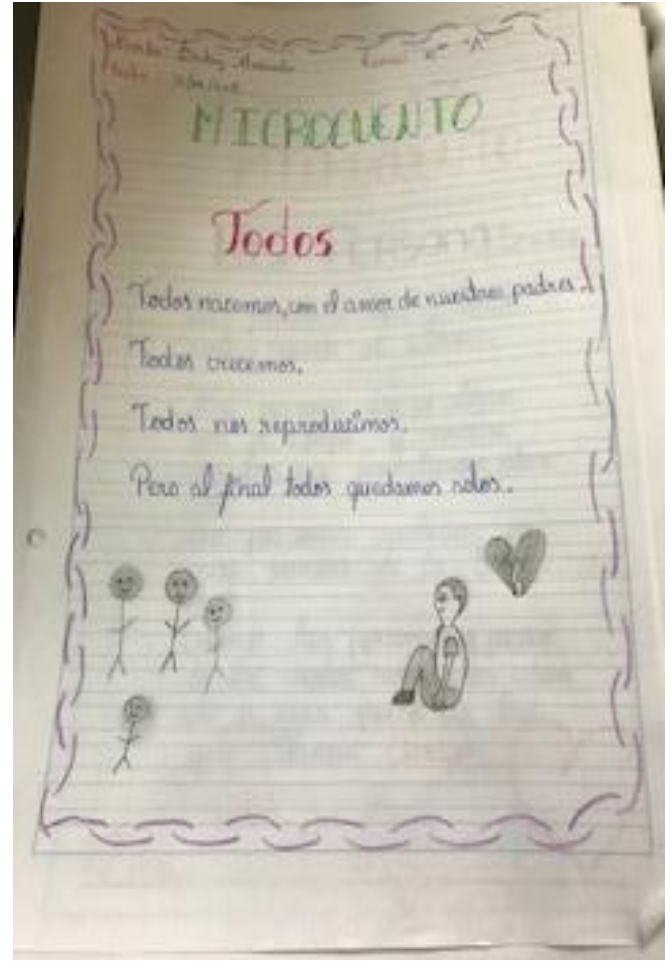 MICROCUENTO
Todos
Todos nacemos, con el amor de nuestros padres.
Todos crecemos.
Todos nos reproducimos.
Pero al final todos quedamos solos.